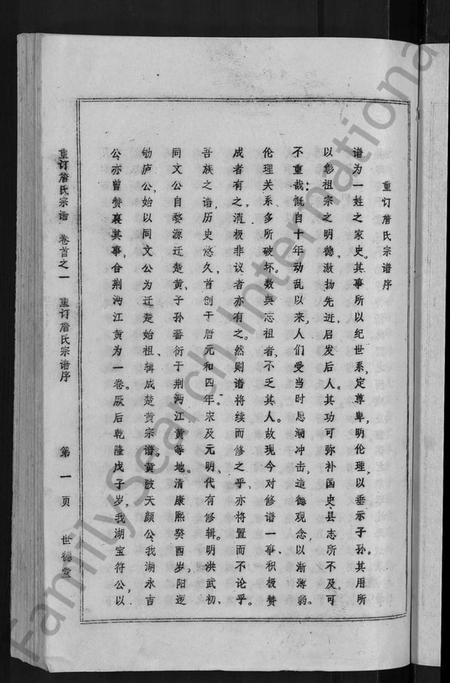 重订詹氏宗谱序
谱为一姓之家史。其事所以纪世系,定尊卑,明伦理,以垂示子孙。其用所
以彰祖宗之明德,激扬先近,启发后人。其功可弥补国史、县志所不及。可
不重哉!慨自十年动乱以来,人们受当时思潮冲击,道德观念,以渐薄弱。
伦理关系,多所破坏。数典忘祖者,不乏其人。故现今对修谱一事,积极赞
成者有之,消极非议者亦有之。然则谱将续而修之乎,亦将置而不论乎。
吾族之谱,历史悠久,首创于唐元和四年。宋及元明,代有修辑。明洪武初,
同文公自婺源迁楚黄,子孙蕃衍于荆沔江黄等地。清康熙癸酉岁,阳逻
勄庐公,始以同文公为迁楚始祖,辑成楚黄宗谱。黄陂天颜公,我湖永吉
公亦曾赞襄其事,合荆沔江黄为一卷。厥后乾隆戊子岁,我湖宝符公,以
重订詹氏宗谱 卷首之一 重订詹氏宗谱序 第一页 世德堂
FamilySearch International